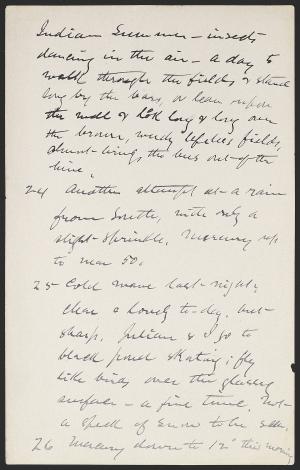 Indian Summer - insects
dancing in the air - a day to
walk through the fields & stand
long by the bars, or lean upon
the wall & look long & long over
the brown, weedy lifeless fields,
almost brings the bees out of the
hive.
24 Another attempt at a rain
from South, with only a
slight sprinkle. Mercury up
to near 50.
25 Cold wave last night;
clear & lovely to-day, but
sharp. Julian & I go to
black pond skating; fly
like birds over the glassy
surface - a fine time. Not
a speck of snow to be seen.
26 Mercury down to 12° this morning